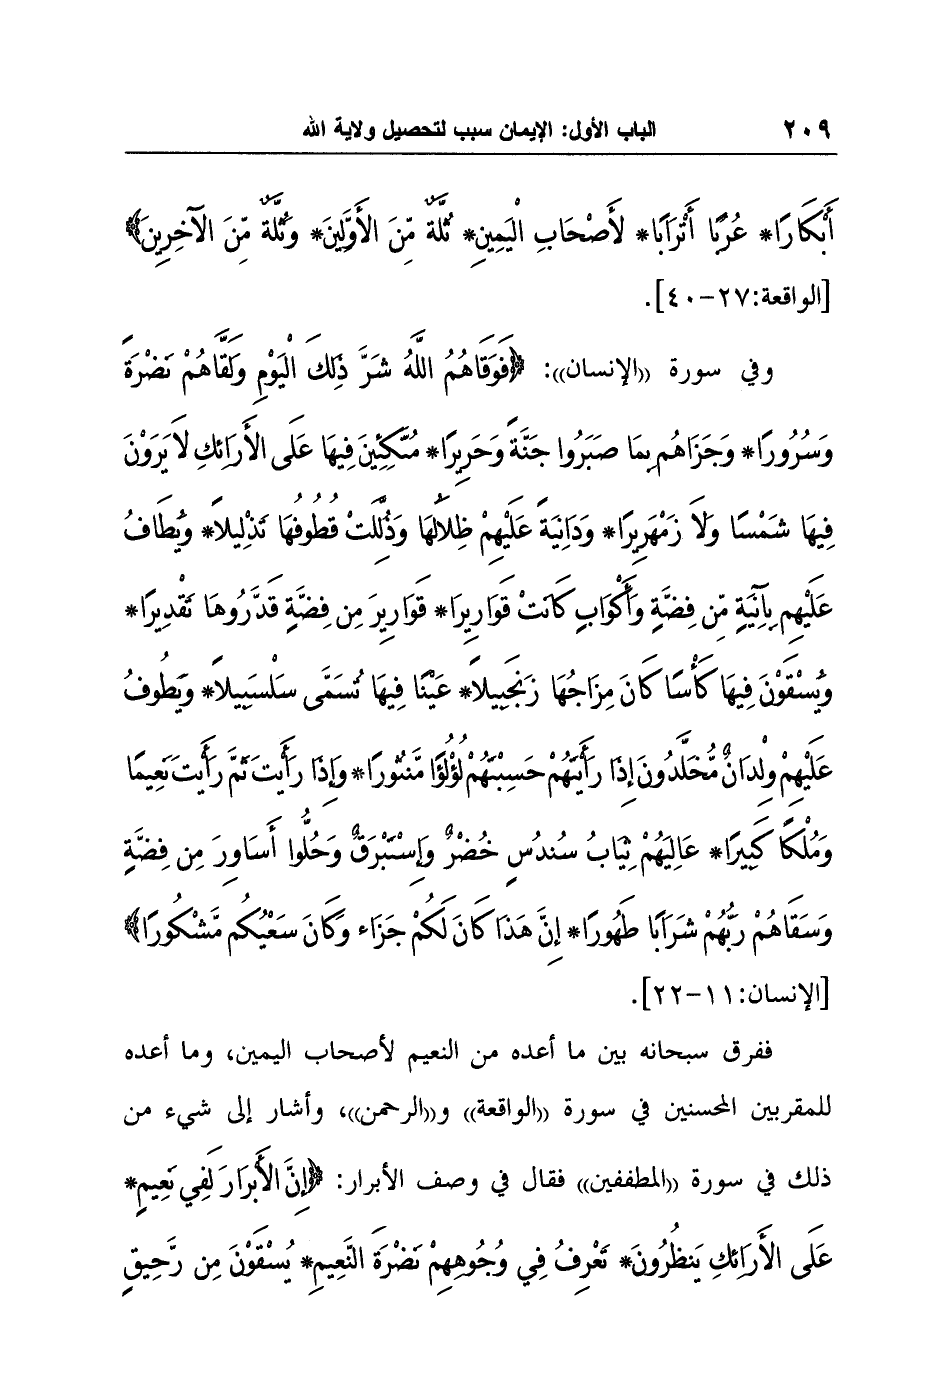 ٢٠٩ الباب الأول: الإيمان سبب لتحصيل ولاية الله
أَبْكَارًا* عُرُبًا أَتْرَابًا* لأَصْحَابِ الْيَمِينِ* ثُلَّةٌ مِّنَ الأَوَّلِينَ* وَثُلَّةٌ مِّنَ الآخِرِينَ﴾
[الواقعة:٢٧-٤٠].
وفي سورة ((الإنسان)): ﴿فَوَقَاهُمُ اللَّهُ شَرَّ ذَلِكَ الْيَوْمِ وَلَقَّاهُمْ نَضْرَةً
وَسُرُورًا* وَجَزَاهُم بِمَا صَبَرُوا جَنَّةً وَحَرِيرًا* مُتَّكِئِينَ فِيهَا عَلَى الأَرَائِكِ لاَ يَرَوْنَ
فِيهَا شَمْسًا وَلاَ زَمْهَرِيرًا* وَدَانِيَةً عَلَيْهِمْ ظِلاَلُهَا وَذُلِّلَتْ قُطُوفُهَا تَذْلِيلاً* وَيُطَافُ
عَلَيْهِم بِآنِيَةٍ مِّن فِضَّةٍ وَأَكْوَابٍ كَانَتْ قَوَارِيرَا* قَوَارِيرَ مِن فِضَّةٍ قَدَّرُوهَا تَقْدِيرًا*
وَيُسْقَوْنَ فِيهَا كَأْسًا كَانَ مِزَاجُهَا زَنجَبِيلاً* عَيْنًا فِيهَا تُسَمَّى سَلْسَبِيلاً* وَيَطُوفُ
عَلَيْهِمْ وِلْدَانٌ مُّخَلَّدُونَ إِذَا رَأَيْتَهُمْ حَسِبْتَهُمْ لُؤْلُؤًا مَّنثُورًا* وَإِذَا رَأَيْتَ ثَمَّ رَأَيْتَ نَعِيمًا
وَمُلْكًا كَبِيرًا* عَالِيَهُمْ ثِيَابُ سُندُسٍ خُضْرٌ وَإِسْتَبْرَقٌ وَحُلُّوا أَسَاوِرَ مِن فِضَّةٍ
وَسَقَاهُمْ رَبُّهُمْ شَرَابًا طَهُورًا* إِنَّ هَذَا كَانَ لَكُمْ جَزَاء وَكَانَ سَعْيُكُم مَّشْكُورًا﴾
[الإنسان:١١-٢٢].
ففرق سبحانه بين ما أعده من النعيم لأصحاب اليمين، وما أعده
للمقربين المحسنين في سورة ((الواقعة)) و((الرحمن))، وأشار إلى شيء من
ذلك في سورة ((المطففين)) فقال في وصف الأبرار: ﴿إِنَّ الأَبْرَارَ لَفِي نَعِيمٍ*
عَلَى الأَرَائِكِ يَنظُرُونَ* تَعْرِفُ فِي وُجُوهِهِمْ نَضْرَةَ النَّعِيمِ* يُسْقَوْنَ مِن رَّحِيقٍ